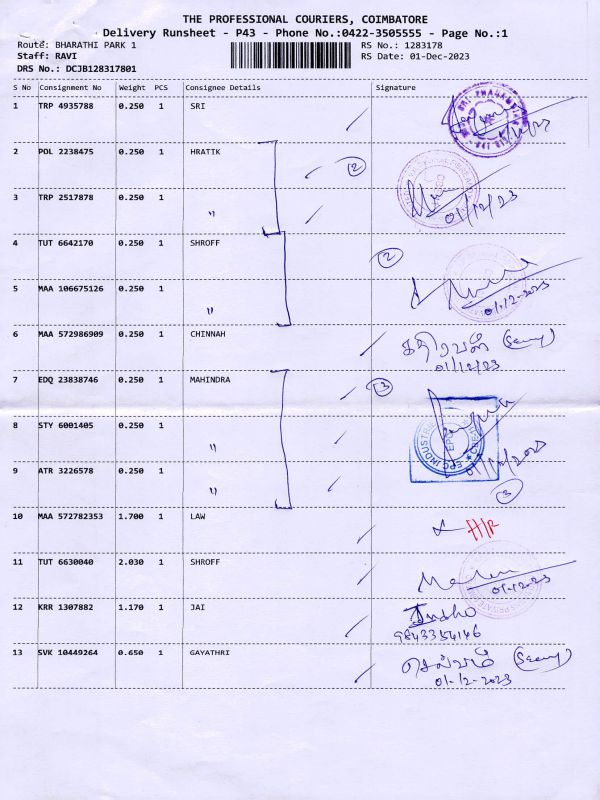 THE PROFESSIONAL COURIERS, COIMBATORE
Delivery Runsheet - P43 - Phone No.:0422-3505555 - Page No.:1
Route: BHARATHI PARK 1 RS No.: 1283178
Staff: RAVI RS Date: 01-Dec-2023
DRS No.: DCJB128317801
S No Consignment No Weight PCS Consignee Details Signature
1 TRP 4935788 0.250 1 SRI
2 POL 2238475 0.250 1 HRATIK 2
3 TRP 2517878 0.250 1 " 01/12/23
4 TUT 6642170 0.250 1 SHROFF 2
5 MAA 106675126 0.250 1 " 01-12-2023
6 MAA 572986909 0.250 1 CHINNAH கதிரவன்
01/12/23
7 EDQ 23838746 0.250 1 MAHINDRA 3
8 STY 6001405 0.250 1 "
EPC INDUSTRIE
9 ATR 3226578 0.250 1 " 01/12/2023
3
10 MAA 572782353 1.700 1 LAW
11 TUT 6630040 2.030 1 SHROFF 01-12-2023
12 KRR 1307882 1.170 1 JAI
9843354146
13 SVK 10449264 0.650 1 GAYATHRI செல்வம்
01-12-2023